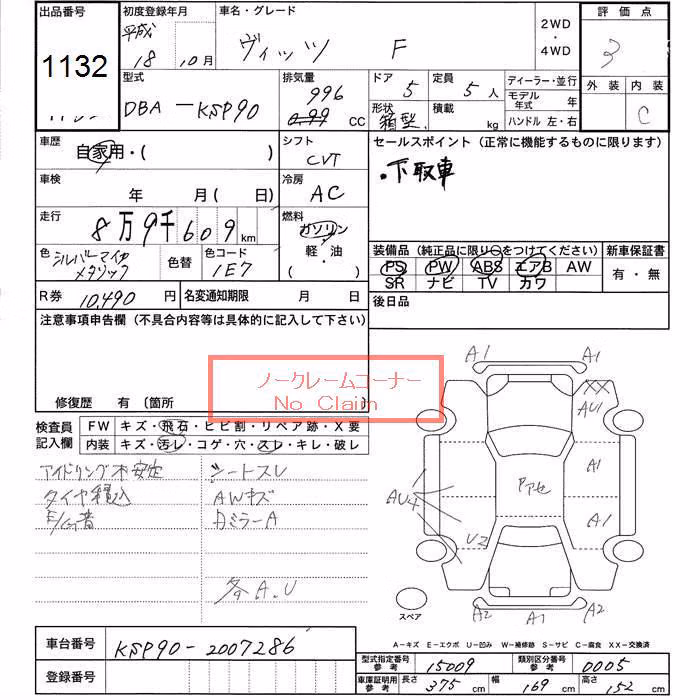 出品番号 初度登録年月 車名・グレード 2WD・4WD 評価点
1132 平成 18 10月 ヴィッツ F 3
型式 排気量 ドア 定員 ディーラー・並行 外装 内装
DBA-KSP90 996 0.99 CC 5 5人 モデル年式 年 C
形状 箱型 積載 kg ハンドル 左・右
車歴 自家用・( ) シフト CVT セールスポイント (正常に機能するものに限ります)
・下取車
車検 年 月( 日) 冷房 AC
走行 8万9千609km 燃料 ガソリン・軽・油・( )
色 シルバーマイカメタリック 色替 色コード 1E7
装備品 (純正品に限り○をつけてください) 新車保証書
PS PW ABS エアB AW 有・無
SR ナビ TV カワ
R券 10,490円 名変通知期限 月 日 後日品
注意事項申告欄 (不具合内容等は具体的に記入して下さい)
ノークレームコーナー
No Claim
修復歴 有 (箇所
検査員記入欄 FW キズ・飛石・ヒビ割・リペア跡・X要
内装 キズ・汚レ・コゲ・穴・スレ・キレ・破レ
アイドリング不安定 シートスレ
タイヤ積込 AWキズ
ミラーA
各A.U
A1 A1
XX
AU1
A1
Pアセ
AU4
A1
U2
A2 A1 A2
スペア
A-キズ E-エクボ U-凹み W-補修跡 S-サビ C-腐食 XX-交換済
車台番号 KSP90-2007286
型式指定番号 参考 15009 類別区分番号 参考 0005
登録番号 車庫証明用 参考 長さ 375cm 幅 169cm 高さ 152cm